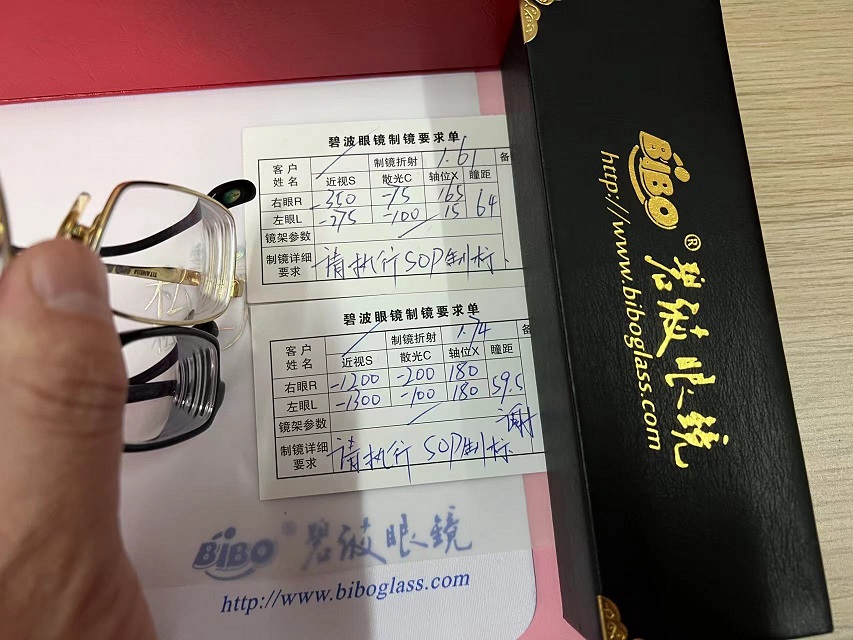 碧波眼镜制镜要求单
客户姓名 制镜折射 1.61 备
近视S 散光C 轴位X 瞳距
右眼R -350 -75 165 64
左眼L -275 -100 15
镜架参数
制镜详细要求 请执行SOP制标
碧波眼镜制镜要求单
客户姓名 制镜折射 1.74 备
近视S 散光C 轴位X 瞳距
右眼R -1200 -200 180 59.5
左眼L -1300 -100 180
镜架参数 谢
制镜详细要求 请执行SOP制标
TITANIUM
BIBO®碧波眼镜
http://www.biboglass.com
BIBO®碧波眼镜
http://www.biboglass.com